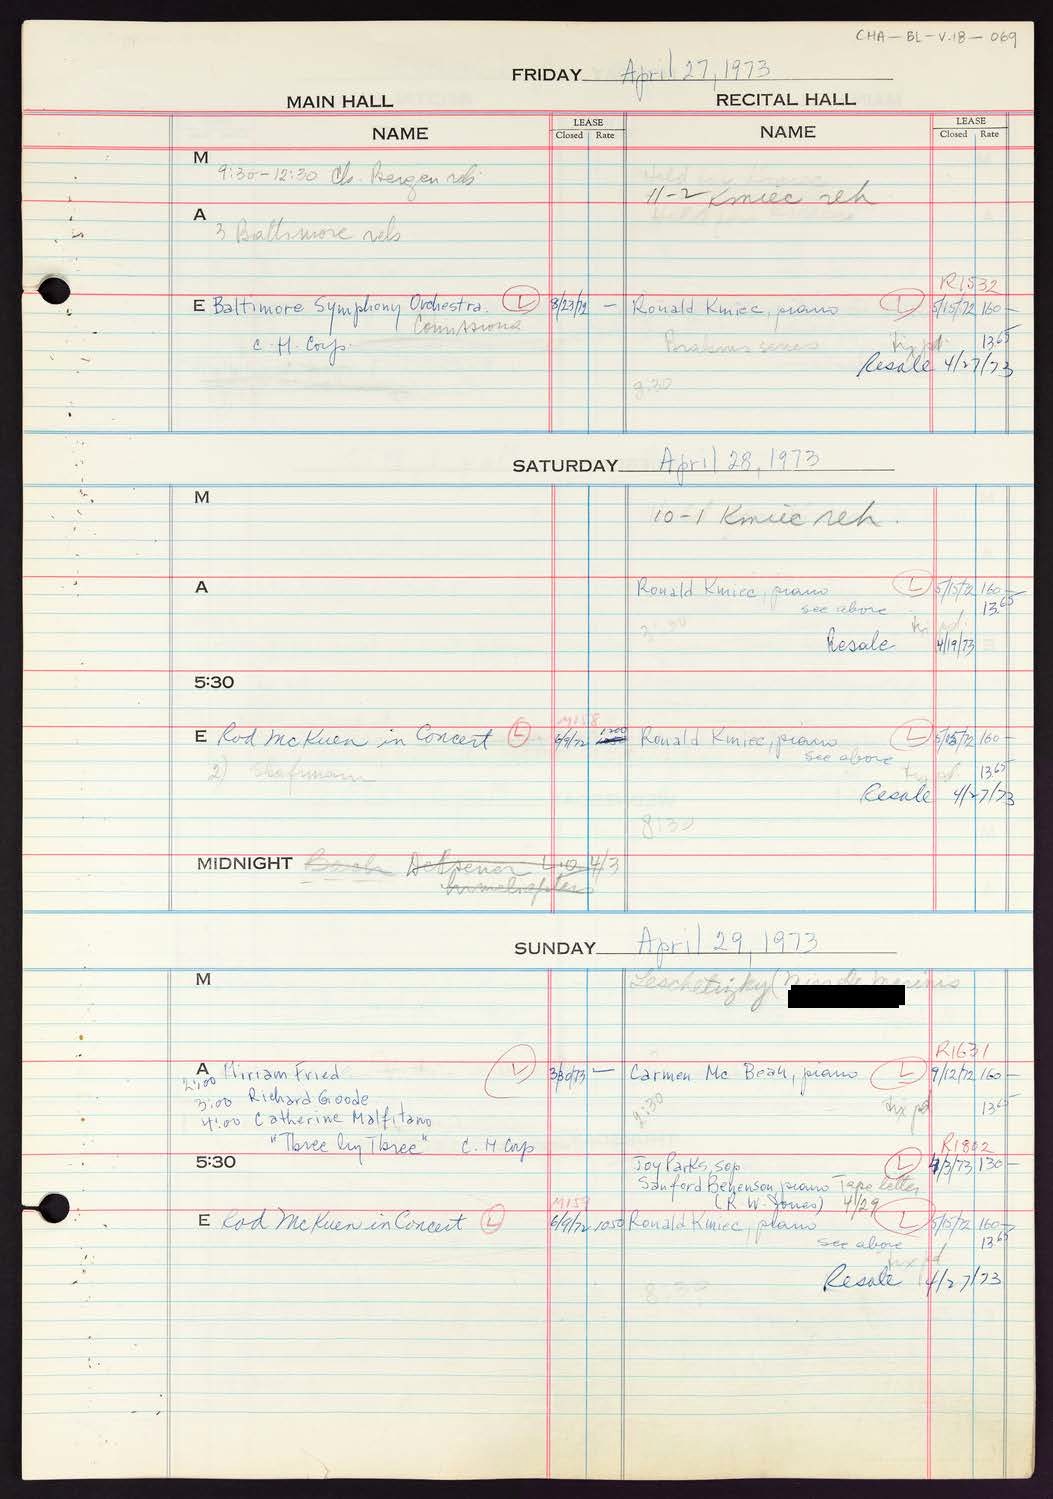 CHA-BL-V.18-069
FRIDAY April 27, 1973
MAIN HALL RECITAL HALL
NAME LEASE Closed Rate NAME LEASE Closed Rate
M 9:30-12:30 Bergen reh.
11-2 Kmiec reh
A 3 Baltimore reh
R1532
E Baltimore Symphony Orchestra. L 8/23/72 — Ronald Kmiec, piano L 5/15/72 160—
Comissiona
C.H. Corp. Brahms series tix pd. 13.65
Resale 4/27/73
SATURDAY April 28, 1973
M 10-1 Kmiec reh.
A Ronald Kmiec, piano L 5/15/72 160—
see above 13.65
3:30 tix pd.
Resale 4/19/73
5:30
M158
E Rod McKuen in Concert L 6/9/72 1200 Ronald Kmiec, piano L 5/15/72 160—
see above
2) Shafman tix pd 13.65
Resale 4/27/73
8:30
MIDNIGHT 4/3
SUNDAY April 29, 1973
M Leschetizky (
R1631
A Miriam Fried L 3/30/73 — Carmen Mc Bean, piano L 9/12/72 160—
2:00
3:00 Richard Goode tix pd 13.65
4:00 Catherine Malfitano
"Three by Three" C.H Corp
R1802
5:30 Joy Parks, sop L 4/3/73 130—
Sanford Behenson, piano Tape letter
(R. W. Jones) 4/29
M159
E Rod McKuen in Concert L 6/9/72 1050 Ronald Kmiec, piano L 5/15/72 160—
see above 13.65
tix pd
Resale 4/27/73
8:30